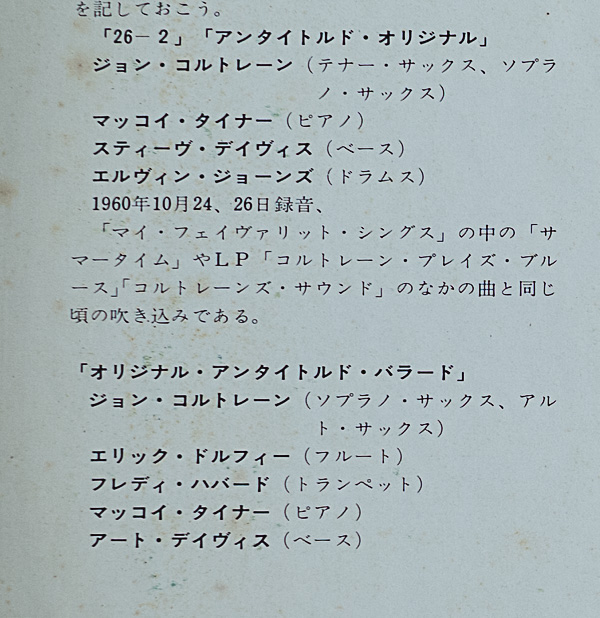 を記しておこう。
「26－2」「アンタイトルド・オリジナル」
ジョン・コルトレーン（テナー・サックス、ソプラ
ノ・サックス）
マッコイ・タイナー（ピアノ）
スティーヴ・デイヴィス（ベース）
エルヴィン・ジョーンズ（ドラムス）
1960年10月24、26日録音、
「マイ・フェイヴァリット・シングス」の中の「サ
マータイム」やLP「コルトレーン・プレイズ・ブル
ース」「コルトレーンズ・サウンド」のなかの曲と同じ
頃の吹き込みである。
「オリジナル・アンタイトルド・バラード」
ジョン・コルトレーン（ソプラノ・サックス、アル
ト・サックス）
エリック・ドルフィー（フルート）
フレディ・ハバード（トランペット）
マッコイ・タイナー（ピアノ）
アート・デイヴィス（ベース）